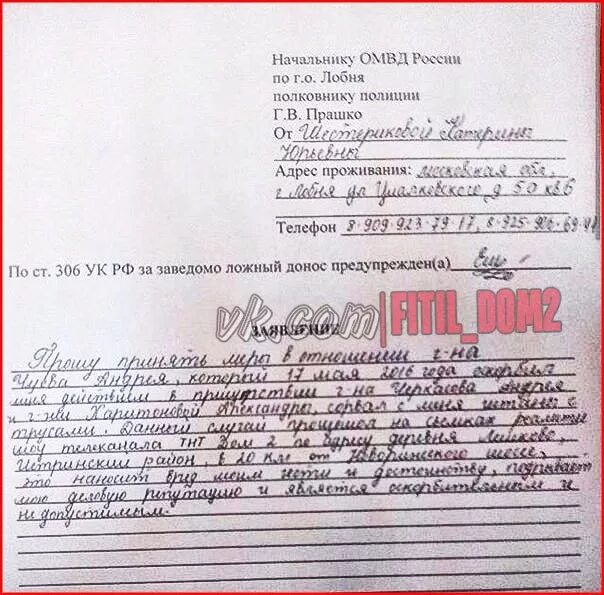 Начальнику ОМВД России
по г.о. Лобня
полковнику полиции
Г.В. Прашко
От Шестериковой Катерины
Юрьевны
Адрес проживания: московская обл,
г Лобня ул Циалковского д 50 кв 6
Телефон 8-909-923-79-17, 8-925-926-69-
По ст. 306 УК РФ за заведомо ложный донос предупрежден(а)
vk.com|FITIL_DOM2
ЗАЯВЛЕНИЕ
Прошу принять меры в отношении г-на
Чуева Андрея, который 17 мая 2016 года оскорбил
меня действием в присутствии г-на Черкасова Андрея
и г-жи Харитоновой Александры, сорвал с меня штаны с
трусами. Данный случай произошел на съемках реалити
шоу телеканала ТНТ Дом 2 по адресу деревня Лешково,
Истринский район, в 20 км от Новорижского шоссе,
это наносит вред моим чести и достоинству, подрывает
мою деловую репутацию и является оскорбительным и
не допустимым.